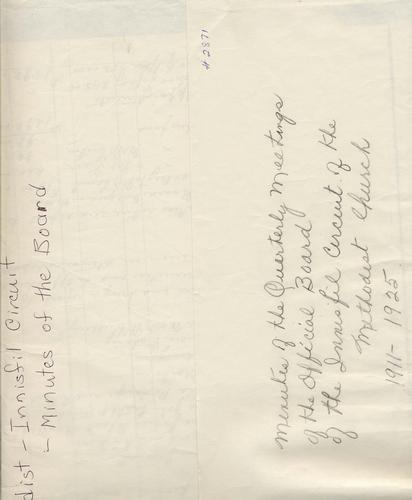 dist - Innisfil Circuit
- Minutes of the Board
# 2871
Minutes of the Quarterly Meetings
of the Official Board
of the Innisfil Circuit of the
Methodist Church
1911 - 1925.